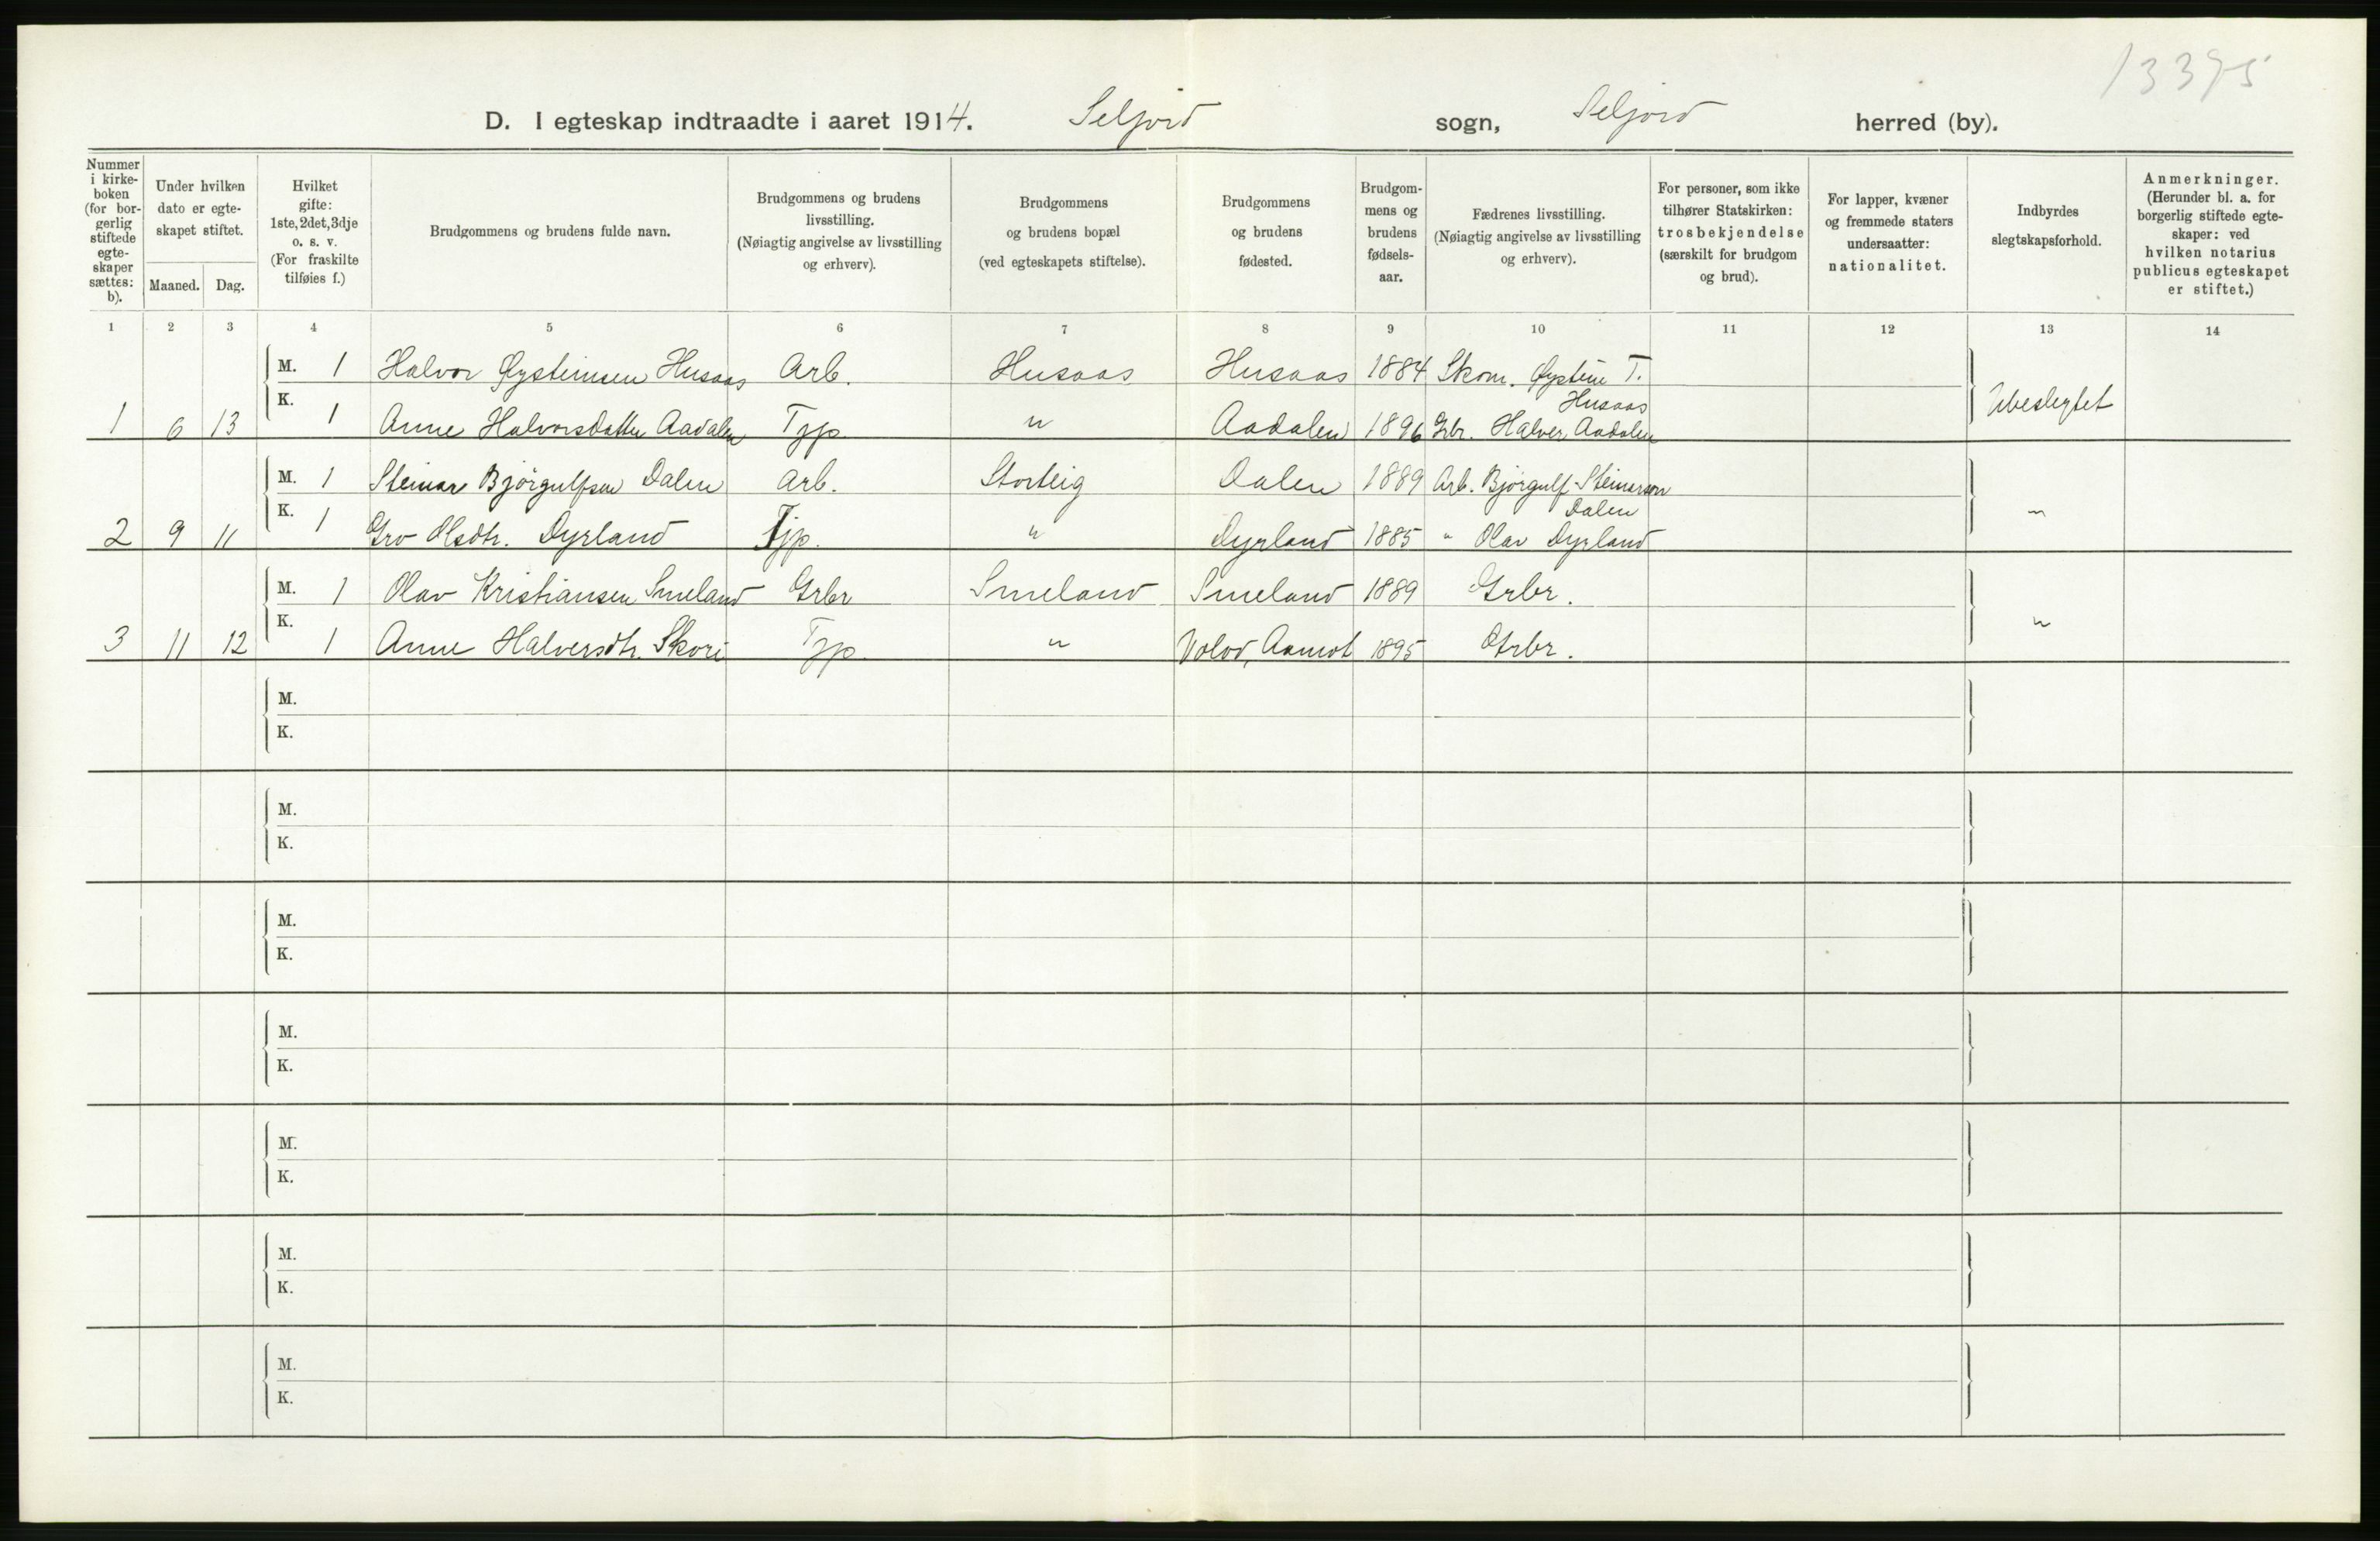 13395
D. I egteskap indtraadte i aaret 1914. Seljord sogn, Seljord herred (by).
Nummer i kirkeboken (for borgerlig stiftede egteskaper sættes: b).
Under hvilken dato er egteskapet stiftet.
Maaned. Dag.
Hvilket gifte: 1ste, 2det, 3dje o. s. v. (For fraskilte tilføies f.)
Brudgommens og brudens fulde navn.
Brudgommens og brudens livsstilling. (Nøiagtig angivelse av livsstilling og erhverv).
Brudgommens og brudens bopæl (ved egteskapets stiftelse).
Brudgommens og brudens fødested.
Brudgommens og brudens fødselsaar.
Fædrenes livsstilling. (Nøiagtig angivelse av livsstilling og erhverv).
For personer, som ikke tilhører Statskirken: trosbekjendelse (særskilt for brudgom og brud).
For lapper, kvæner og fremmede staters undersaatter: nationalitet.
Indbyrdes slegtskapsforhold.
Anmerkninger. (Herunder bl. a. for borgerlig stiftede egteskaper: ved hvilken notarius publicus egteskapet er stiftet.)
1 2 3 4 5 6 7 8 9 10 11 12 13 14
M. 1 Halvor Øysteinsen Husaas Arb. Husaas Husaas 1884 Skom. Øystein T. Husaas
1 6 13 K. 1 Anne Halvorsdatter Aadalen Tjp. " Aadalen 1896 Grbr. Halver Aadalen Ubeslegtet
M. 1 Steinar Bjørgulfsen Dalen Arb. Storteig Dalen 1889 Arb. Bjørgulf Steinarson Dalen
2 9 11 K. 1 Gro Olsdtr. Dyrland Tjp. " Dyrland 1885 " Olav Dyrland "
M. 1 Olav Kristiansen Smeland Grbr Smeland Smeland 1889 Grbr.
3 11 12 K. 1 Anne Halversdtr. Skori Tjp. " Aamot 1895 Grbr. "
M.
K.
M.
K.
M.
K.
M.
K.
M.
K.
M.
K.
M.
K.